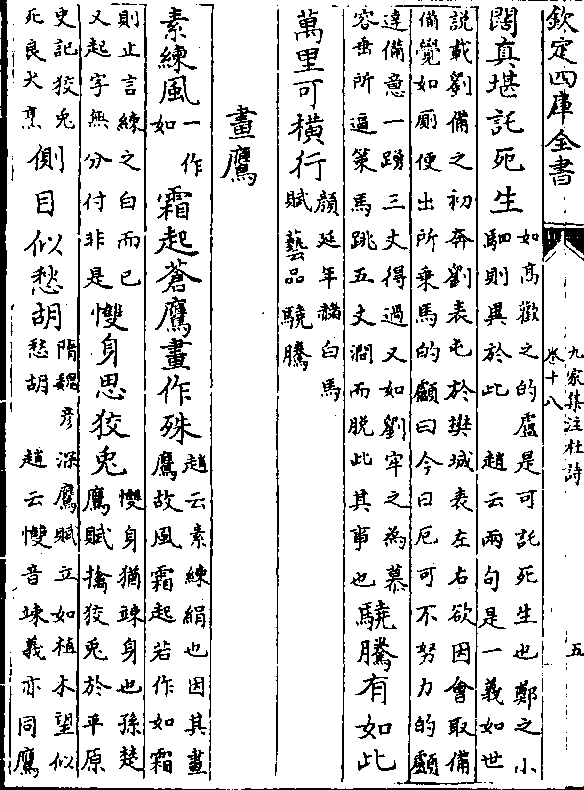 欽定四庫全書
九家集注杜詩
卷十八
五
闊真堪託死生如髙歡之的盧是可託死生也鄭之小
駟則異於此　趙云兩句是一義如世
說載劉備之初奔劉表屯於樊城表左右欲因會取備
備覺如厠便出所乗馬的顱曰今日厄可不努力的顱
達備意一踴三丈得過又如劉牢之為慕
容垂所逼策馬跳五丈澗而脱此其事也驍騰有如此
萬里可橫行顔延年赭白馬
賦藝品驍騰
畫鷹
素練風一作
如霜起蒼鷹畫作殊趙云素練絹也因其畫
鷹故風霜起若作如霜
則止言練之白而已
又起字無分付非是㩳身思狡兎㩳身猶竦身也孫楚
鷹賦擒狡兎於平原
史記狡兎
死良犬烹側目似愁胡隋魏彦深鷹賦立如植木望似
愁胡　趙云㩳音竦義亦同鷹